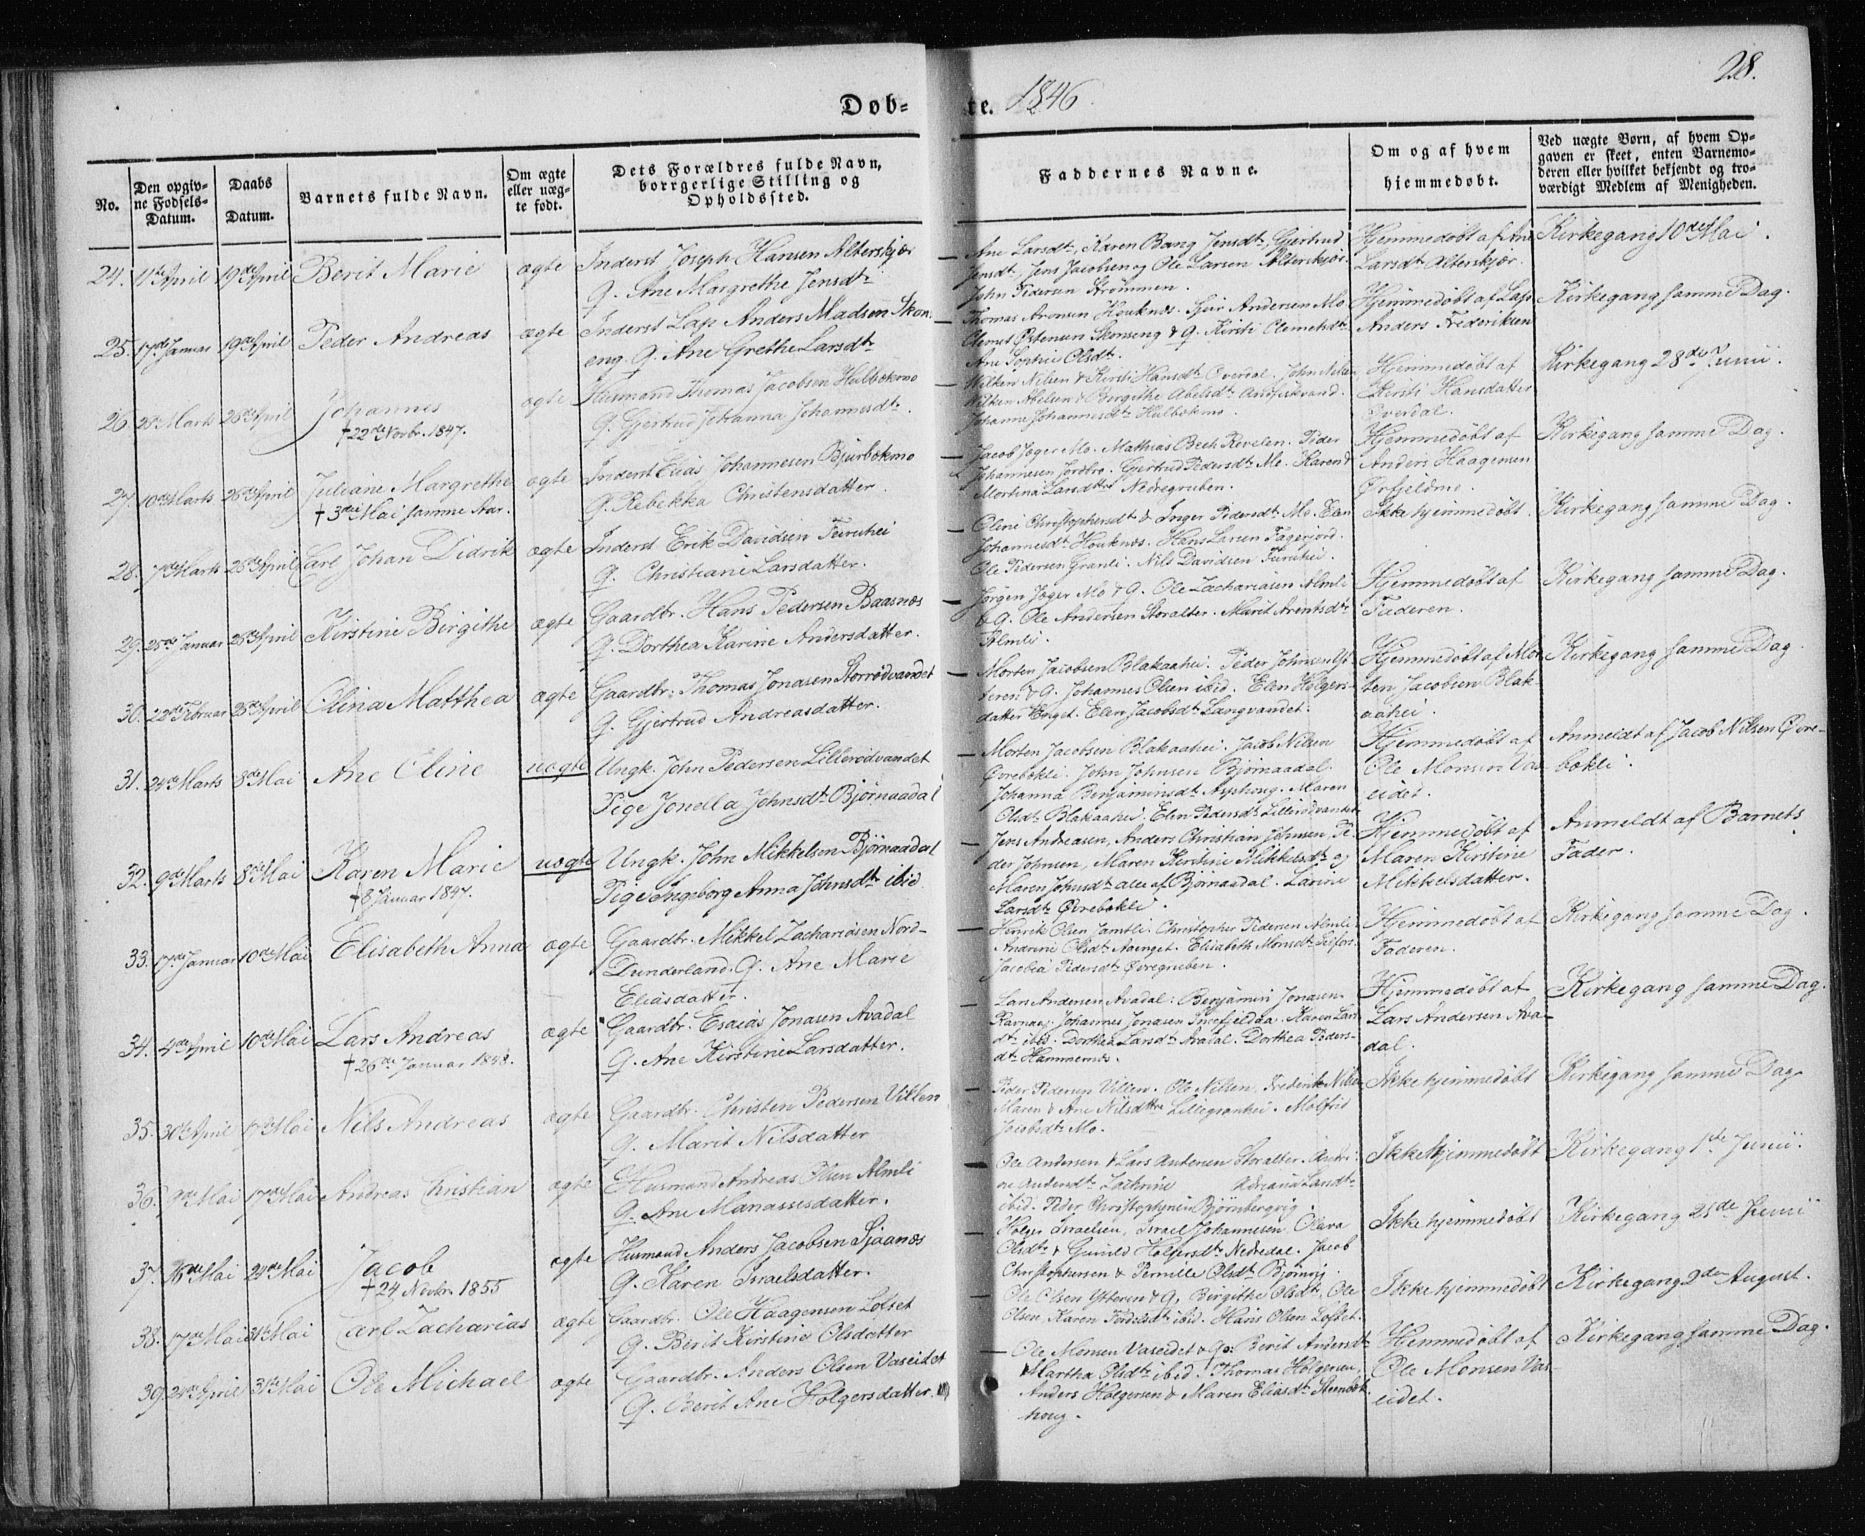 28.
Døb-
te. 1846.
No.
Den opgiv-
ne Fødsels-
Datum.
Daabs
Datum.
Barnets fulde Navn.
Om ægte
eller uæg-
te født.
Dets Forældres fulde Navn,
borrgerlige Stilling og
Opholdssted.
Faddernes Navne.
Om og af hvem
hjemmedøbt.
Ved uægte Børn, af hvem Op-
gaven er skeet, enten Barnemo-
deren eller hvilket bekjendt og tro-
værdigt Medlem af Menigheden.
24. 11te April 19de April Berit Marie ægte Inderst Joseph Hansen Alterskjær
G. Ane Margrethe Jensdtr
Ane Larsdtr, Karen Bang Jensdtr, Gjertrud
Jensdtr, Jens Jacobsen og Ole Larsen Alterskjær.
John Pedersen Strømmen.
Hjemmedøbt af Ane
Larsdtr Alterskjær.
Kirkegang 10de Mai.
25. 17de Januar 19de April Peder Andreas ægte Inderst Lap Anders Madsen Skon-
eng. G. Ane Grethe Larsdtr
Thomas Aronsen Houknes. Andersen Mo
Skonseng & G. Kirsti
Ane Sophie Olsdtr.
Hjemmedøbt af Lap
Anders Frederiksen
Kirkegang samme Dag.
26. 28 Marts 26de April Johannes
† 22de Novbr. 1847.
ægte Husmand Thomas Jacobsen Hulbekmo
G. Gjertrud Johanna Johannesdtr.
Wilken Nilsen & Kirsti Hansdtr Overdal. John Nilsen,
Wilken Nilsen & Bergithe Abelsdtr Andfiskvand.
Johanne Johannesdtr Hulbekmo.
Hjemmedøbt af
Kirsti Hansdatter
Overdal.
Kirkegang 28de Junii.
27. 10de Marts 26de April Juliane Margrethe
† 3die Mai samme Aar.
ægte Inderst Elias Johannesen Bjurbekmo
G. Rebekka Christensdatter
Jacob Jæger Mo. Mathias Bech Revelen. Peder
Johannesen Jordbro. Gjertrud Pedersdtr Mo. Karen &
Mortina Larsdttre Nedregruben.
Hjemmedøbt af
Anders Haagensen
Ørfjeldmo.
Kirkegang samme Dag.
28. 7de Marts 26de April Carl Johan Didrik ægte Inderst Erik Davidsen Furuhei
G. Christiane Larsdatter.
Oline Christophersdtr & Inger Pedersdtr Mo. Elen
Johannesdtr Houknes. Hans Larsen Fagerjord.
Ole Pedersen Granli. Nils Davidsen Furuhei.
Ikke hjemmedøbt.
Kirkegang samme Dag.
29. 28de Januar 26de April Kirstine Birgithe ægte Gaardbr. Hans Pedersen Baasnæs
G. Dorthea Karine Andersdatter.
Jørgen Jæger Mo & G. Ole Zachariasen Almli
& G. Ole Andersen Storalter. Marit Arentsdtr
Almli.
Hjemmedøbt af
Faderen.
Kirkegang samme Dag.
30. 22de Februar 26de April Olina Matthea ægte Gaardbr. Thomas Jonasen Storrødvandet
G. Gjertrud Andreasdatter.
Morten Jacobsen Blakaahei. Peder Johnsen Yt-
teren & G. Johannes Olsen ibid. Elen Holgers-
datter Enget. Elen Jacobsdtr Langvandet.
Hjemmedøbt af Mor-
ten Jacobsen Blak-
aahei.
Kirkegang samme Dag
31. 24de Marts 8de Mai Ane Eline uægte Ungk. John Pedersen Lillerødvandet
Pige Jonella Johnsdtr Bjørnaadal
Morten Jacobsen Blakaahei. Jacob Nilsen
Øvrebekli. John Johnsen Bjørnaadal.
Johanna Benjaminsdtr Maren
Olsdtr Blakaahei. Elen Pedersdtr Lillerødvandet
Hjemmedøbt af
Ole Monsen Vas-
eidet.
Anmeldt af Jacob Nilsen Øvre-
bekli.
32. 9de Marts 8de Mai Karen Marie
† 8 Januar 1847.
uægte Ungk. John Mikkelsen Bjørnaadal
Pige Ingeborg Anna Johnsdtr ibid.
Jens Andreasen, Anders Christian Johnsen, Pe-
der Johnsen, Maren Kirstine Mikkelsdtr og
Maren Johnsdtr alle af Bjørnaadal. Larine
Larsdtr Øvrebekli.
Hjemmedøbt af
Maren Kirstine
Mikkelsdatter.
Anmeldt af Barnets
Fader.
33. 17de Januar 10de Mai Elisabeth Anna ægte Gaardbr. Mikkel Zachariasen Nord-
Dunderland. G. Ane Marie
Eliasdatter.
Henrik Olsen Jamtli. Christopher Pedersen Almli.
Andrine Olsdtr Aaenget. Elisabeth Monsdtr
Jacobia Pedersdtr Øvregruben.
Hjemmedøbt af
Faderen.
Kirkegang samme Dag.
34. 4de April 10de Mai Lars Andreas
† 26de Januar 1848.
ægte Gaardbr. Esaias Jonasen Avadal
G. Ane Kirstine Larsdatter.
Lars Andersen Avadal. Benjamin Jonasen
Ravnaa. Johannes Jonasen Karen Lars-
dtr ibid. Dorthea Larsdtr Avadal. Dorthea Peders-
dtr Hammernes.
Hjemmedøbt af
Lars Andersen Ava-
dal.
Kirkegang samme Dag.
35. 30te April 17de Mai Nils Andreas ægte Gaardbr. Christen Pedersen Villen
G. Marit Nilsdatter
Peder Pedersen Villen. Ole Nilsen, Frederik Nilsen
Maren & Ane Nilsdttre Malfrid
Jacobsdtr Mo.
Ikke hjemmedøbt
Kirkegang samme Dag
36. 9de Mai 17de Mai Andreas Christian ægte Husmand Andreas Olsen Almli
G. Ane Manassesdatter.
Ole Andersen & Lars Andersen Storalter.
Adriana Larsdtr
ibid. Peder Christophersen
Ikke hjemmedøbt
Kirkegang 1ste Junii.
37. 16de Mai 24de Mai Jacob
† 24 Novbr 1855
ægte Husmand Anders Jacobsen Sjaanæs
G. Karen Israelsdatter.
Holger Israelsen, Israel Johannesen. Olava
Olsdtr & Gunild Holgersdtr Nedredal. Jacob
Christophersen & Pernille Olsdtr
Ikke hjemmedøbt
Kirkegang 21de Junii
38. 17de Mai 31te Mai Carl Zacharias ægte Gaardbr. Ole Haagensen Loftet
G. Berit Kirstine Olsdatter
Ole Olsen Ytteren & G. Birgithe Olsdtr, Ole
Olsen. Karen ibid. Hans Olsen Loftet.
Ikke hjemmedøbt
Kirkegang 9de August.
39. 24de April 31te Mai Ole Michael ægte Gaardbr. Anders Olsen Vaseidet
G. Berit Ane Holgersdatter.
Ole Monsen Vaseidet & G. Berit Andersdtr
& Martha Olsdtr ibid. Thomas Holgersen,
Anders Holgersen & Maren Eliasdtr
houg.
Hjemmedøbt af
Ole Monsen Vas-
eidet.
Kirkegang samme Dag.